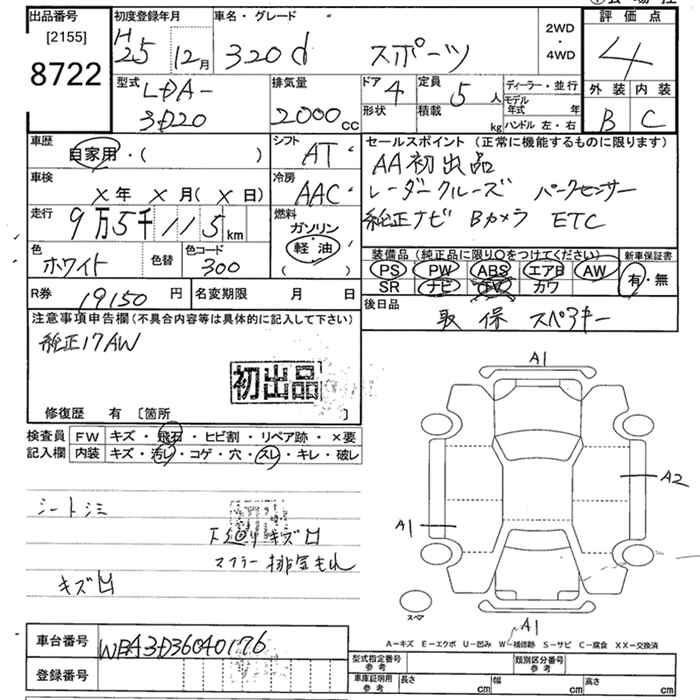 出品番号
[2155]
8722
初度登録年月
H
25 12月
車名・グレード
320d スポーツ
2WD
・
4WD
評価点
4
外装 内装
B C
型式
LDA-
3D20
排気量
2000cc
ドア 4
形状
定員 5人
積載 kg
ディーラー・並行
モデル年式 年
ハンドル 左・右
車歴
自家用・( )
シフト
AT
セールスポイント (正常に機能するものに限ります)
AA初出品
レーダークルーズ パークセンサー
純正ナビ Bカメラ ETC
車検
×年 ×月(×日)
冷房
AAC
走行
9万5千115km
燃料
ガソリン
軽油
( )
色
ホワイト
色替
色コード
300
装備品 (純正品に限り○をつけてください)
PS PW ABS エアB AW
SR ナビ TV カワ
新車保証書
有・無
R券 19150円
名変期限 月 日
後日品
取 保 スペアキー
注意事項申告欄(不具合内容等は具体的に記入して下さい)
純正17AW
初出品
修復歴 有 〔箇所 〕
検査員
記入欄
FW キズ・飛石・ヒビ割・リペア跡・×要
内装 キズ・汚レ・コゲ・穴・スレ・キレ・破レ
シートシミ
下廻りキズ凹
マフラー排気もれ
キズ凹
A1
A2
A1
スペア
A1
A−キズ E−エクボ U−凹み W−補修跡 S−サビ C−腐食 XX−交換済
車台番号 WBA3D36040176
登録番号
型式指定番号
参考
類別区分番号
参考
車庫証明用
参考
長さ cm
幅 cm
高さ cm